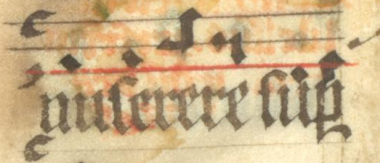 miſerere ſuꝑ